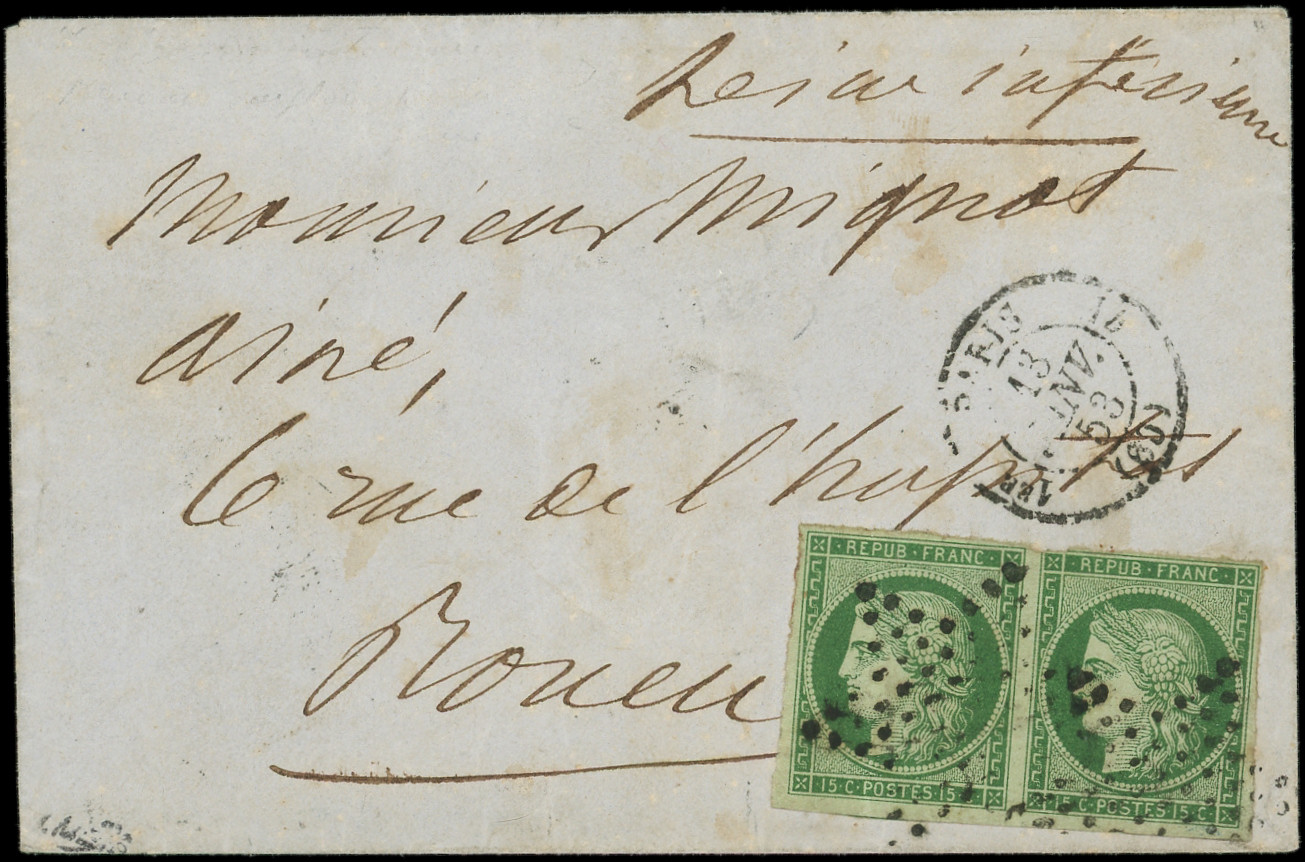 Seine inférieure
Monsieur Mignot
ainé,
6 rue de l'hopital
Rouen
PARIS
13
JANV.
53
(60)
REPUB·FRANC
15·C·POSTES·15·C
REPUB·FRANC
C·POSTES·15·C